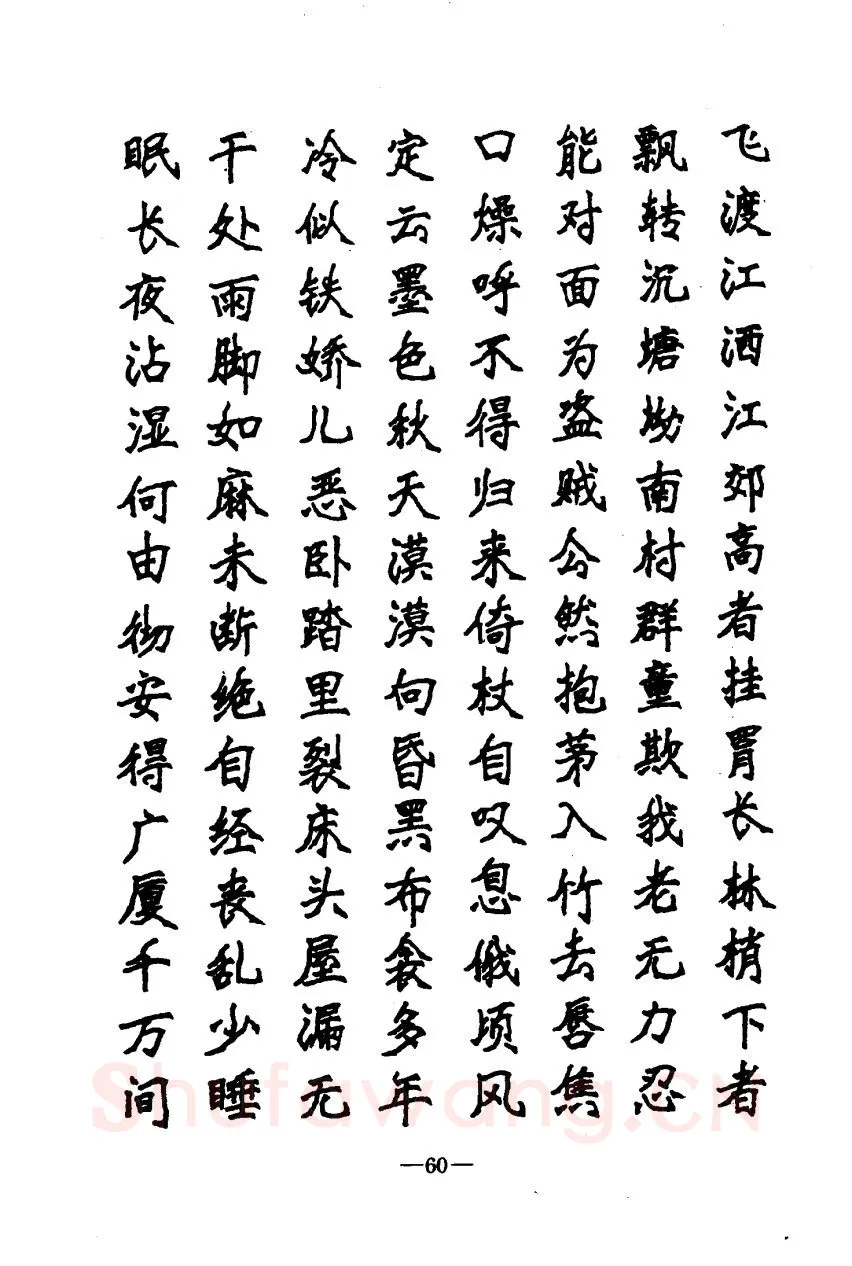 飞渡江洒江郊高者挂罥长林梢下者
飘转沉塘坳南村群童欺我老无力忍
能对面为盗贼公然抱茅入竹去唇焦
口燥呼不得归来倚杖自叹息俄顷风
定云墨色秋天漠漠向昏黑布衾多年
冷似铁娇儿恶卧踏里裂床头屋漏无
干处雨脚如麻未断绝自经丧乱少睡
眠长夜沾湿何由彻安得广厦千万间
Shufawang.CN
—60—